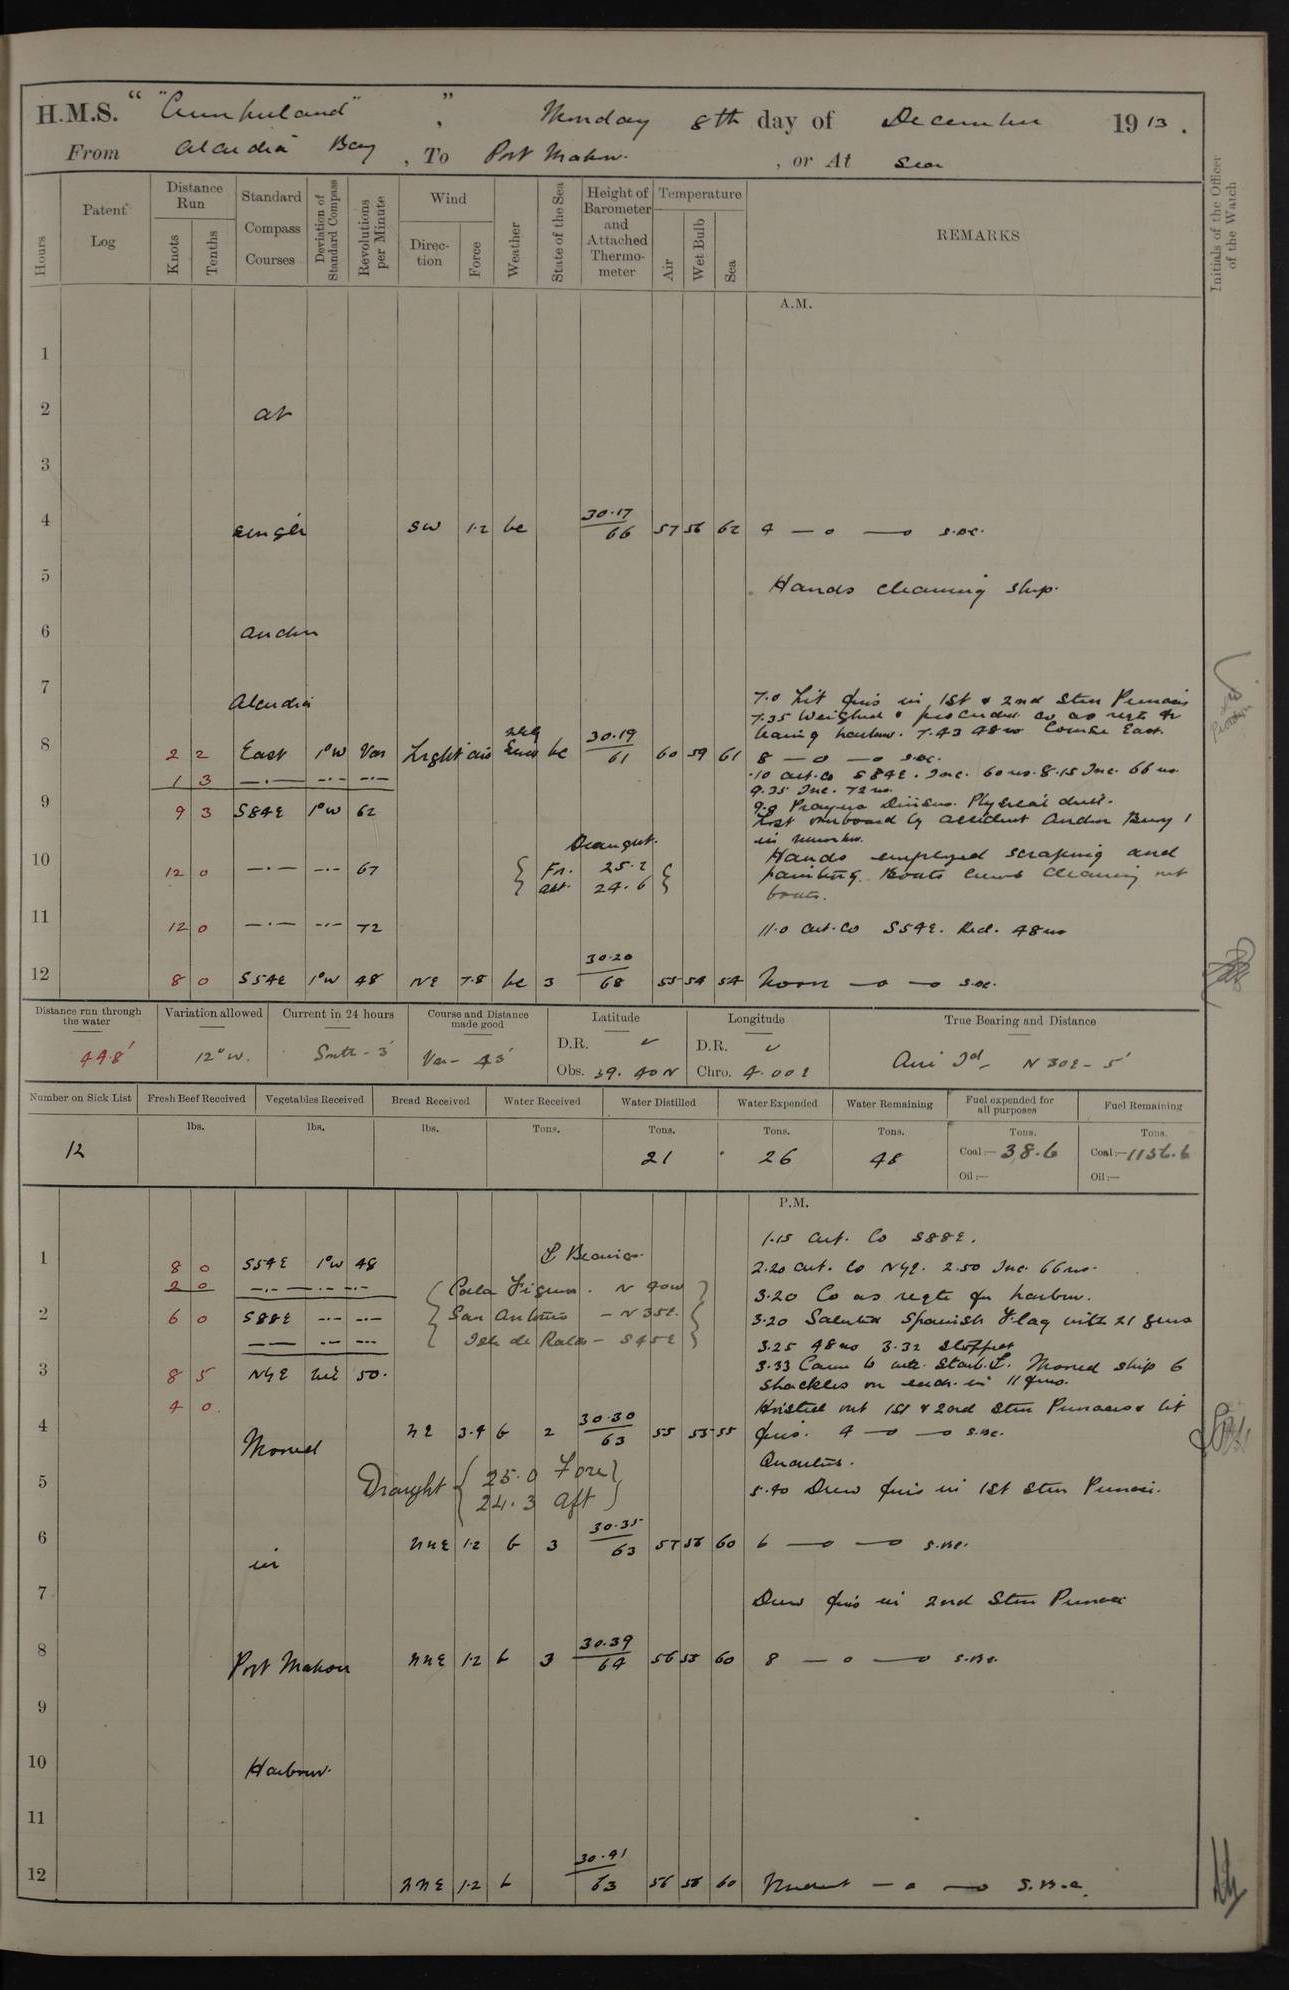 H.M.S. "Cumberland", Monday 8th day of December 1913.
From Alcudia Bay, To Port Mahon. , or At Sea
Hours
Patent Log
Distance Run
Knots
Tenths
Standard Compass Courses
Deviation of Standard Compass
Revolutions per Minute
Wind
Direction
Force
Weather
State of the Sea
Height of Barometer and Attached Thermometer
Temperature
Air
Wet Bulb
Sea
REMARKS
Initials of the Officer of the Watch
A.M.
1
2 at
3
4 single SW 1.2 bc 30.17 66 57 56 62 4 — o — o s.bc.
5 Hands cleaning ship.
6 anchor
7 Alcudia 7.0 Lit fires in 1st & 2nd Stm Pinnaces
7.35 Weighed & proceeded co as reqte for
leaving harbour. 7.43 48 rev Course East.
8 2 2 East 1°W Var Light airs bc 30.19 61 60 59 61 8 — o — o s.bc.
1 3 — . — — . — — . —
.10 alt. co S84E. Inc. 60 rev. 8.15 Inc. 66 rev.
9.35 Inc. 72 rev.
9 9 3 S84E 1°W 62
9.0 Prayers Divisions. Physical drill.
Lost overboard by accident Anchor Buoy 1
in number.
10 12 0 — . — — . — 67
Draught.
For. 25.2
aft. 24.6
Hands employed scraping and
painting. Boats crews cleaning out
boats.
11 12 0 — . — — . — 72 11.0 alt. co S54E. Red. 48 rev
12 8 0 S54E 1°W 48 NE 7.8 bc 3 30.20 68 55 54 54 Noon — o — o s.bc.
Distance run through the water
44.8'
Variation allowed
12°W.
Current in 24 hours
3'
Course and Distance made good
Var— 43'
Latitude
D.R.
Obs. 39.40N
Longitude
D.R.
Chro. 4.00E
True Bearing and Distance
Aire Id — N30E — 5'
Number on Sick List
12
Fresh Beef Received
lbs.
Vegetables Received
lbs.
Bread Received
lbs.
Water Received
Tons.
Water Distilled
Tons.
21
Water Expended
Tons.
26
Water Remaining
Tons.
48
Fuel expended for all purposes
Tons.
Coal:— 38.6
Oil:—
Fuel Remaining
Tons.
Coal:— 1156.6
Oil:—
P.M.
1.15 alt. Co S88E.
1 8 0 S54E 1°W 48 Bearings. 2.20 alt. Co N9E. 2.50 Inc. 66 rev.
2 0 — . — — . — — . — Cala Figuera. N 40W 3.20 Co as reqte for harbour.
2 6 0 S88E — . — — . — San Antonio — N35E. 3.20 Saluted Spanish Flag with 21 guns
Isle de Ratas — S45E 3.25 48 rev 3.32 Stopped
3 8 5 N9E nil 50. 3.33 Came to with Starb. Moored ship 6
shackles on each in 11 fms.
4 0. Hoisted out 1st & 2nd Stm Pinnaces & lit
4 Moored NE 3.4 b 2 30.30 63 55 53 55 fires. 4 — o — o s.bc.
Quarters.
5 Draught 25.0 Fore 24.3 aft 5.40 Drew fires in 1st Stm Pinnace.
6 in NNE 1.2 b 3 30.35 63 57 56 60 6 — o — o s.bc.
7 Drew fires in 2nd Stm Pinnace
8 Port Mahon NNE 1.2 b 3 30.39 64 56 55 60 8 — o — o s.bc.
9
10 Harbour.
11
12 NNE 1.2 b 30.41 63 56 55 60 Midnight — o — o s.b.c.